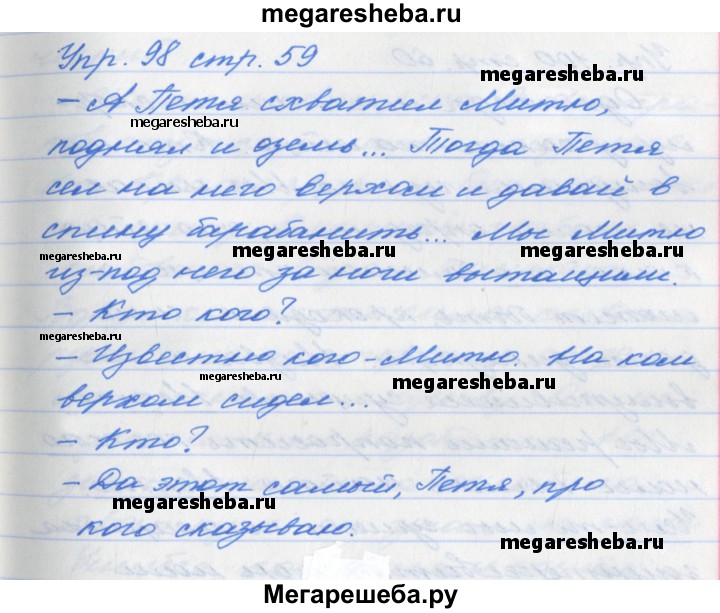 megaresheba.ru
Упр. 98 стр. 59
megaresheba.ru
– А Петя схватил Митю,
megaresheba.ru
поднял и оземь... Тогда Петя
сел на него верхом и давай в
спину барабанить... Мы Митю
megaresheba.ru megaresheba.ru megaresheba.ru
из-под него за ноги вытащили.
– Кто кого?
megaresheba.ru
– Известно кого – Митю. На ком
megaresheba.ru megaresheba.ru
верхом сидел...
– Кто?
– Да этот самый, Петя, про
megaresheba.ru
кого сказываю.
megaresheba.ru
Мегарешеба.ру